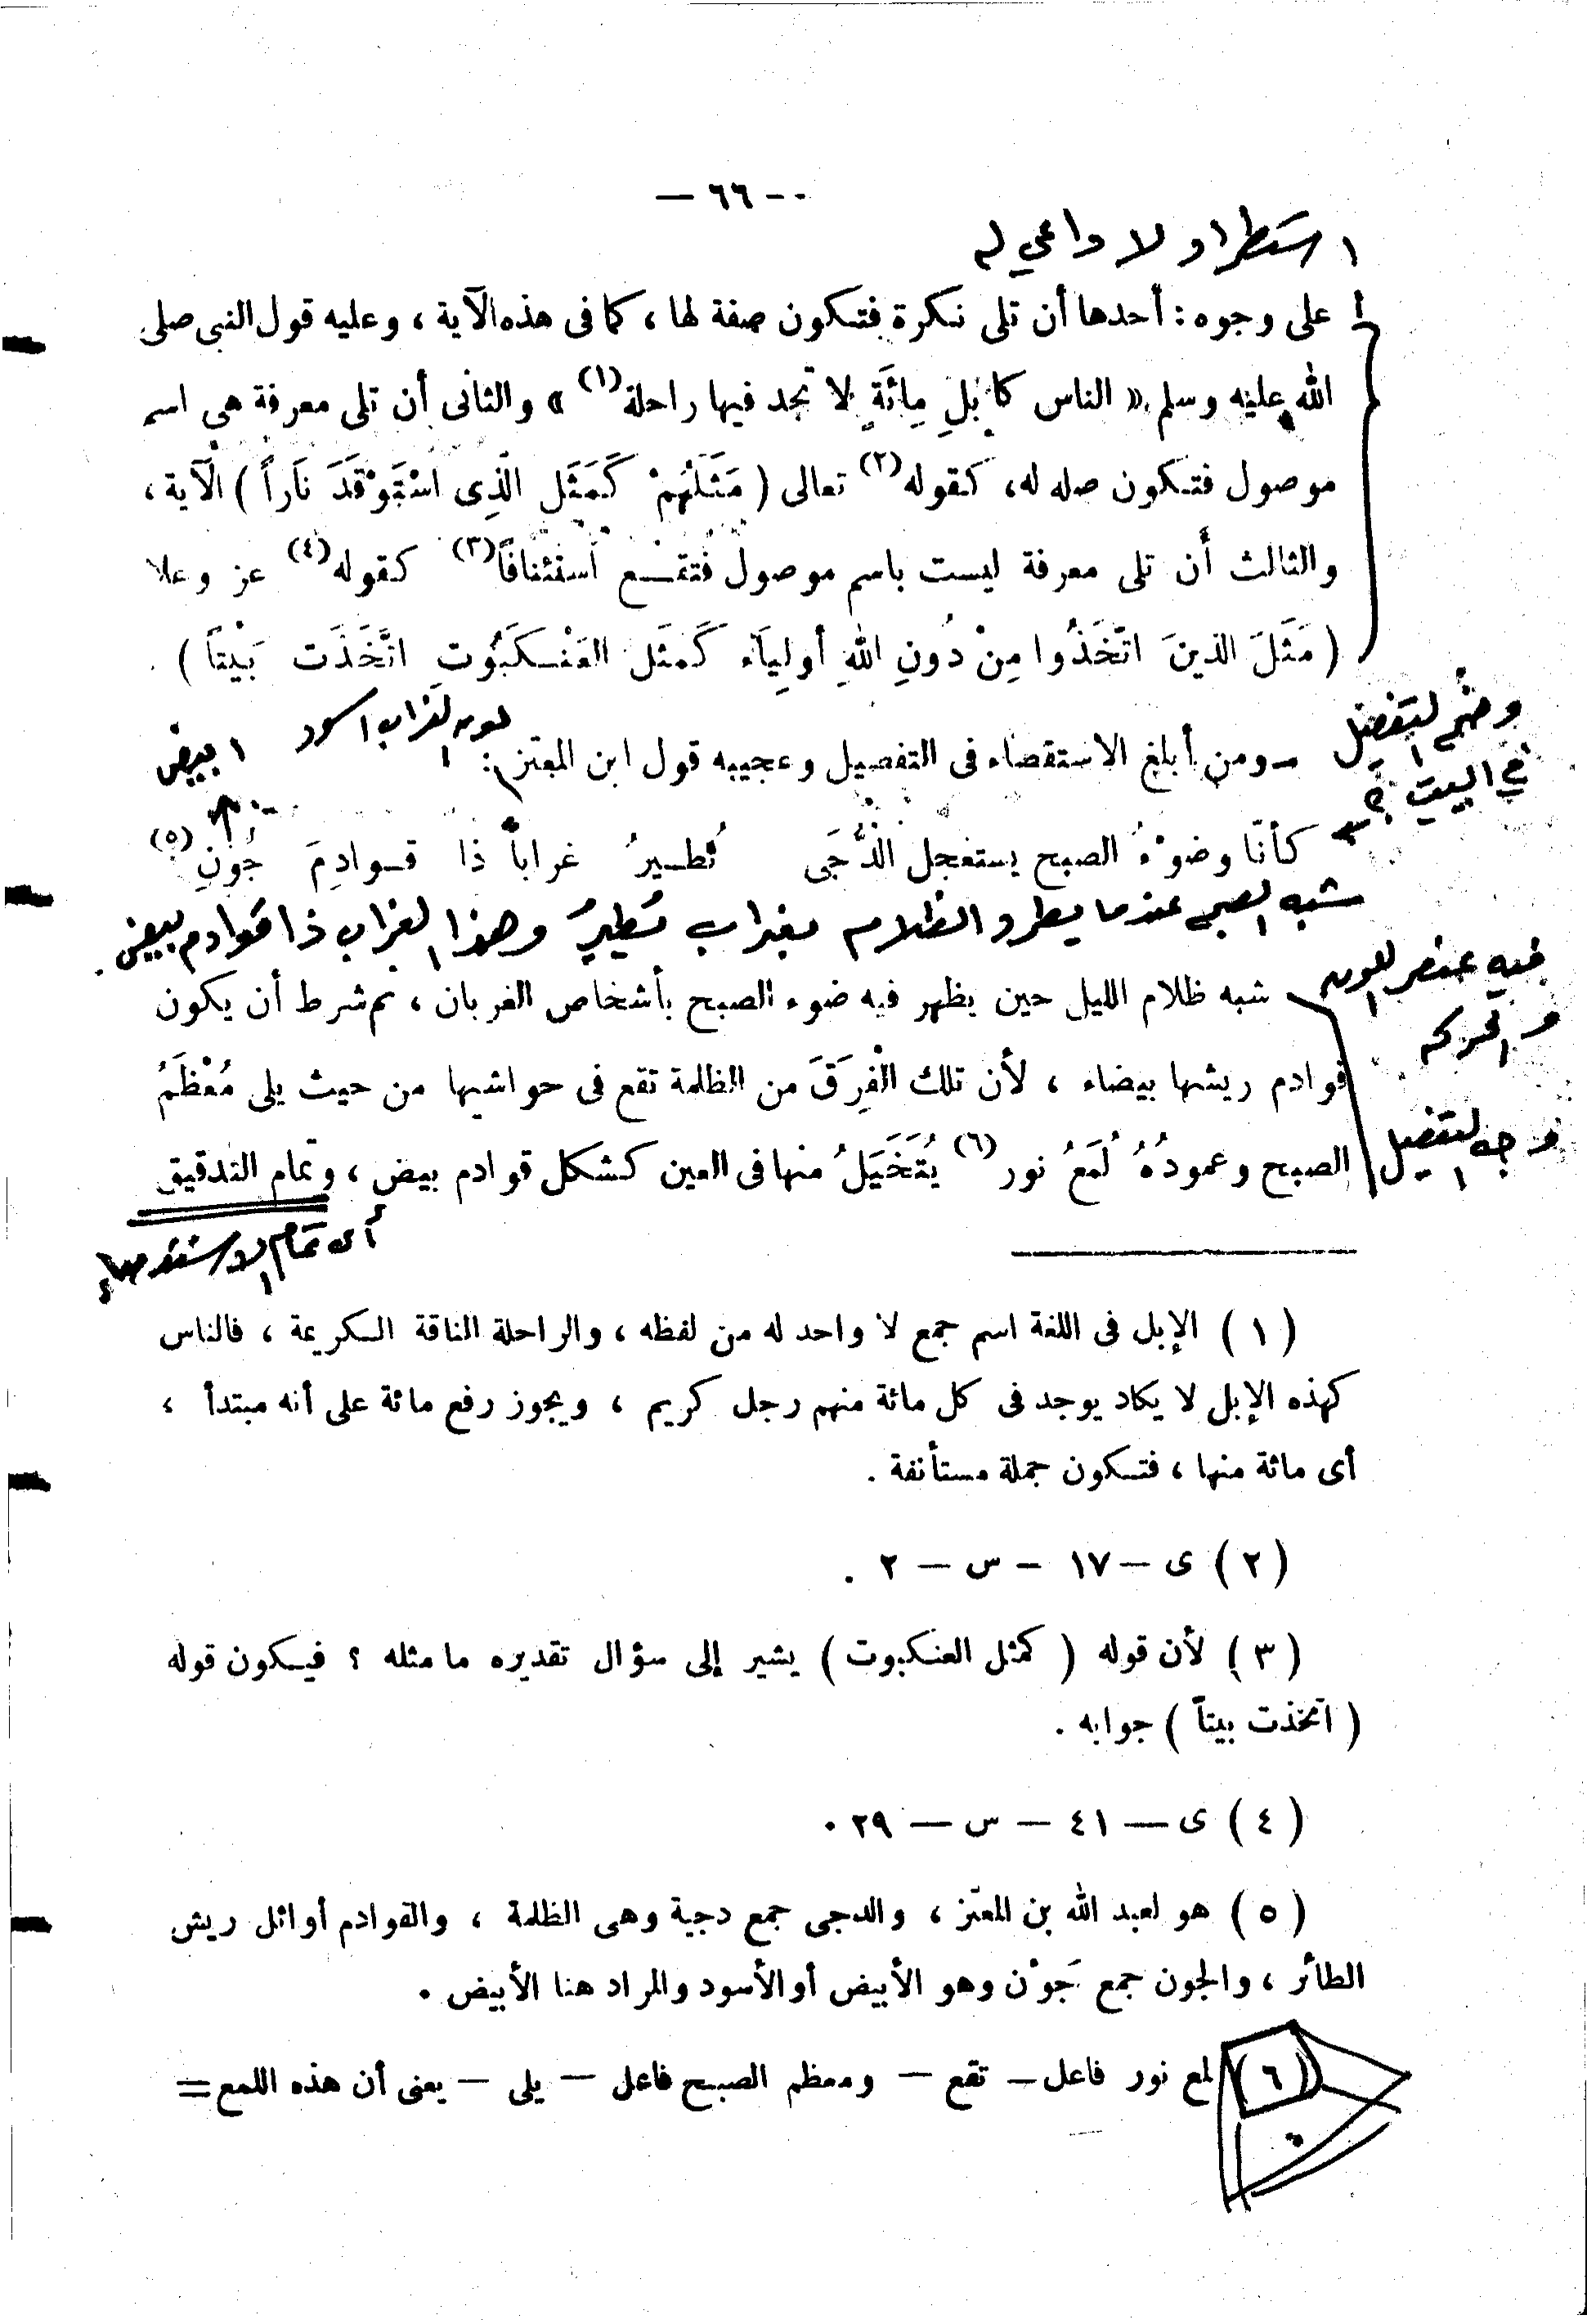 -- ٦٦ —
استطراد لا داعي له
على وجوه : أحدها أن تلى نكرة فتكون صفة لها ، كما فى هذه الآية ، وعليه قول النبى صلى
الله عليه وسلم « الناس كإبلِ مِائَةٍ لا تجد فيها راحلة (١) » والثانى أن تلى معرفة هى اسم
موصول فتكون صله له، كقوله (٢) تعالى ( مَثَلُهُمْ كَمَثَلِ الَّذِى اسْتَوْقَدَ نَاراً ) الآية ،
والثالث أن تلى معرفة ليست باسم موصول فتقع استئنافاً (٣) كقوله (٤) عز وعلا
( مَثَلَ الذينَ اتَّخَذُوا مِنْ دُونِ اللهِ أولِيَآء كَمثَلِ العَنْكَبُوتِ اتَّخَذَت بَيْتاً ) .
وضح التفضيل
في البيت ؟
لون الغراب اسود
ابيض
ومن أبلغ الاستقصاء فى التفصيل وعجيبه قول ابن المعتز :
كأنّا وضوْءُ الصبح يستعجل الدُّجَى نُطـيرُ غراباً ذا قـوادِمَ جُونِ (٥)
شبه الصبح عندما يطرد الظلام بغراب يَطيرُ وهذا الغراب ذا قوادم بيض .
فيه عنصر اللون
والحركة
وجه التفضيل
شبه ظلام الليل حين يظهر فيه ضوء الصبح بأشخاص الغربان ، ثم شرط أن يكون
قوادم ريشها بيضاء ، لأن تلك الْفِرَقَ من الظلمة تقع فى حواشيها من حيث يلى مُعْظَمُ
الصبح وعمودُهُ لُمَعُ نور (٦) يُتَخَيَلُ منها فى العين كشكل قوادم بيض ، وتمام التدقيق
أى تمام الاستقصاء
( ١ ) الإبل فى اللغة اسم جمع لا واحد له من لفظه ، والراحلة الناقة الكريمة ، فالناس
كهذه الإبل لا يكاد يوجد فى كل مائة منهم رجل كريم ، ويجوز رفع مائة على أنه مبتدأ ،
أى مائة منها ، فتكون جملة مستأنفة .
( ٢ ) ى — ١٧ — س — ٢ .
( ٣ ) لأن قوله ( كمثل العنكبوت ) يشير إلى سؤال تقديره ما مثله ؟ فيكون قوله
( اتخذت بيتاً ) جوابه .
( ٤ ) ى — ٤١ — س — ٢٩ .
( ٥ ) هو لعبد الله بن المعتز ، والدجى جمع دجية وهى الظلمة ، والقوادم أوائل ريش
الطائر ، والجون جمع جَوْن وهو الأبيض أو الأسود والمراد هنا الأبيض .
( ٦ ) لمع نور فاعل — تقع — ومعظم الصبح فاعل — يلى — يعنى أن هذه اللمع =